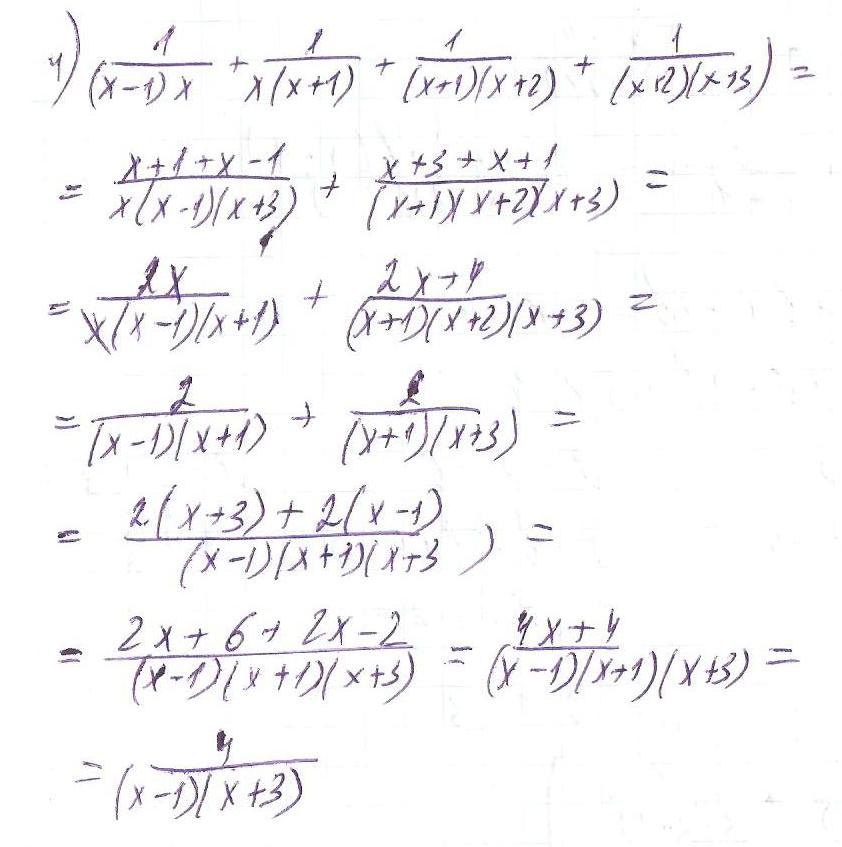 4) 1/((x-1)x) + 1/(x(x+1)) + 1/((x+1)(x+2)) + 1/((x+2)(x+3)) =
= (x+1+x-1)/(x(x-1)(x+3)) + (x+3+x+1)/((x+1)(x+2)(x+3)) =
= 2x/(x(x-1)(x+1)) + (2x+4)/((x+1)(x+2)(x+3)) =
= 2/((x-1)(x+1)) + 2/((x+1)(x+3)) =
= (2(x+3)+2(x-1))/((x-1)(x+1)(x+3)) =
= (2x+6+2x-2)/((x-1)(x+1)(x+3)) = (4x+4)/((x-1)(x+1)(x+3)) =
= 4/((x-1)(x+3))